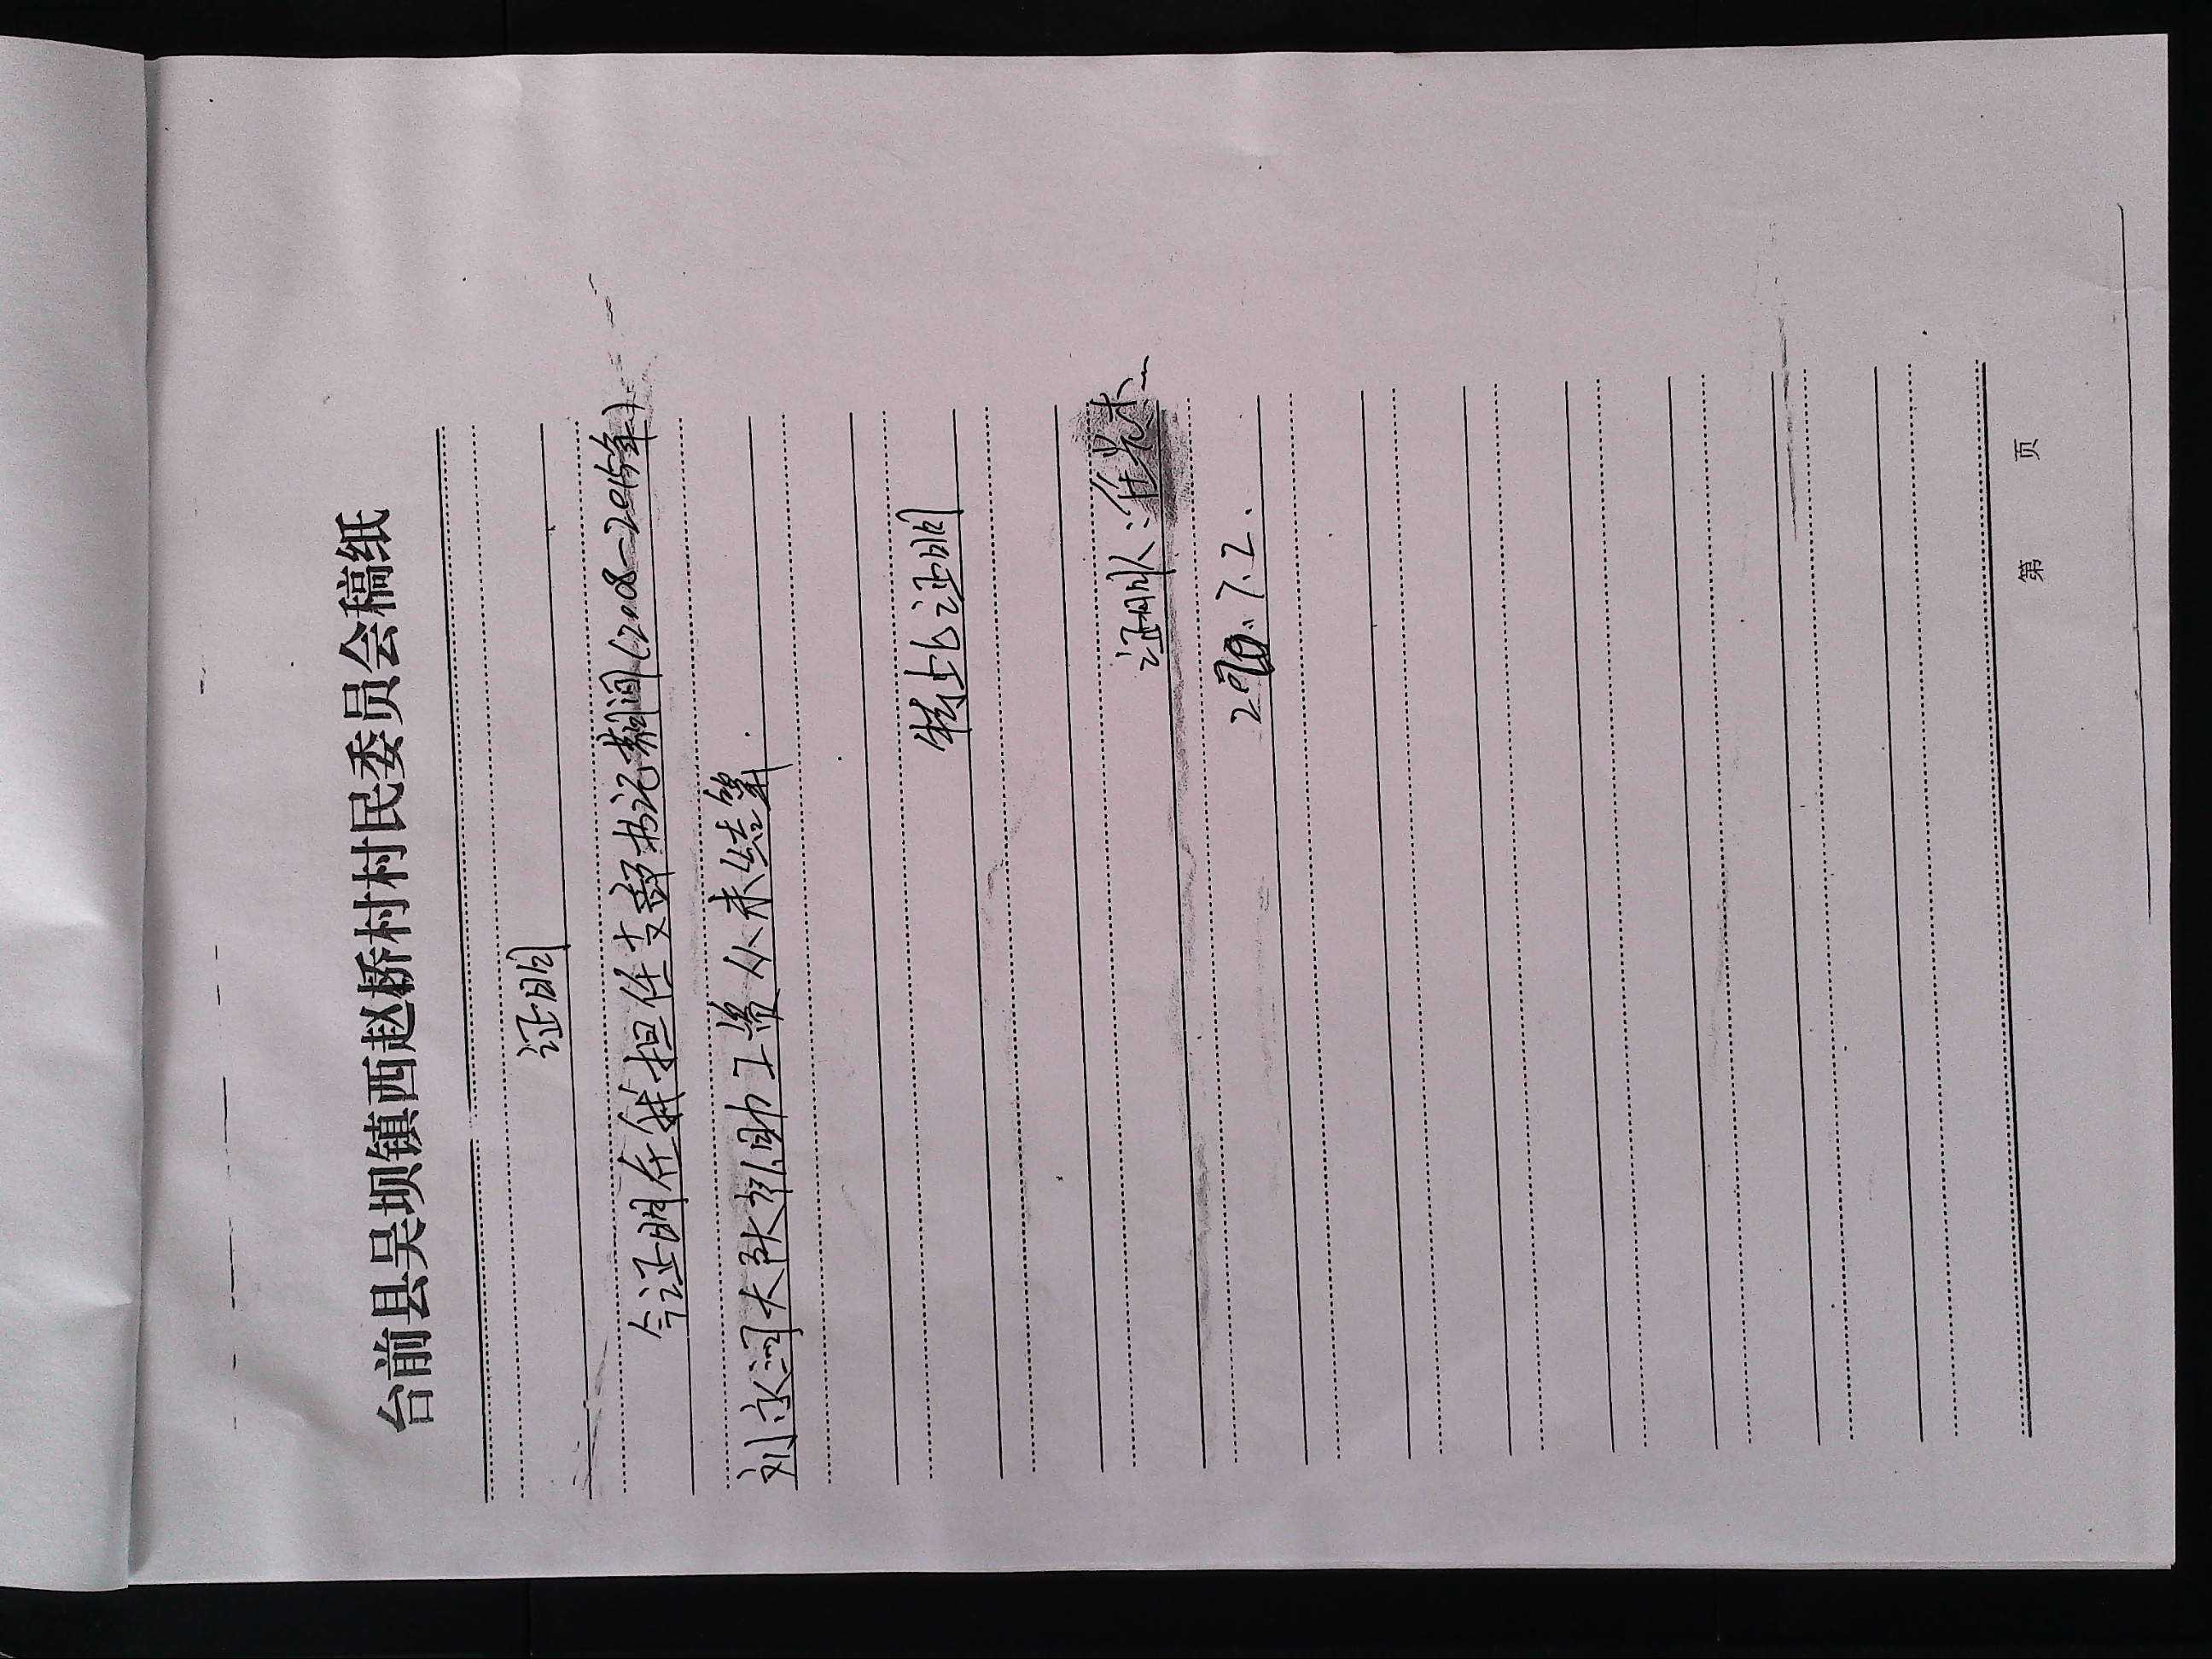 台前县吴坝镇西赵桥村村民委员会稿纸
证明
今证明在我担任支部书记期间(2008-2015年)
刘永润大队补助工资从未结算.
特此证明
证明人:任光木
20.7.2.
第 页